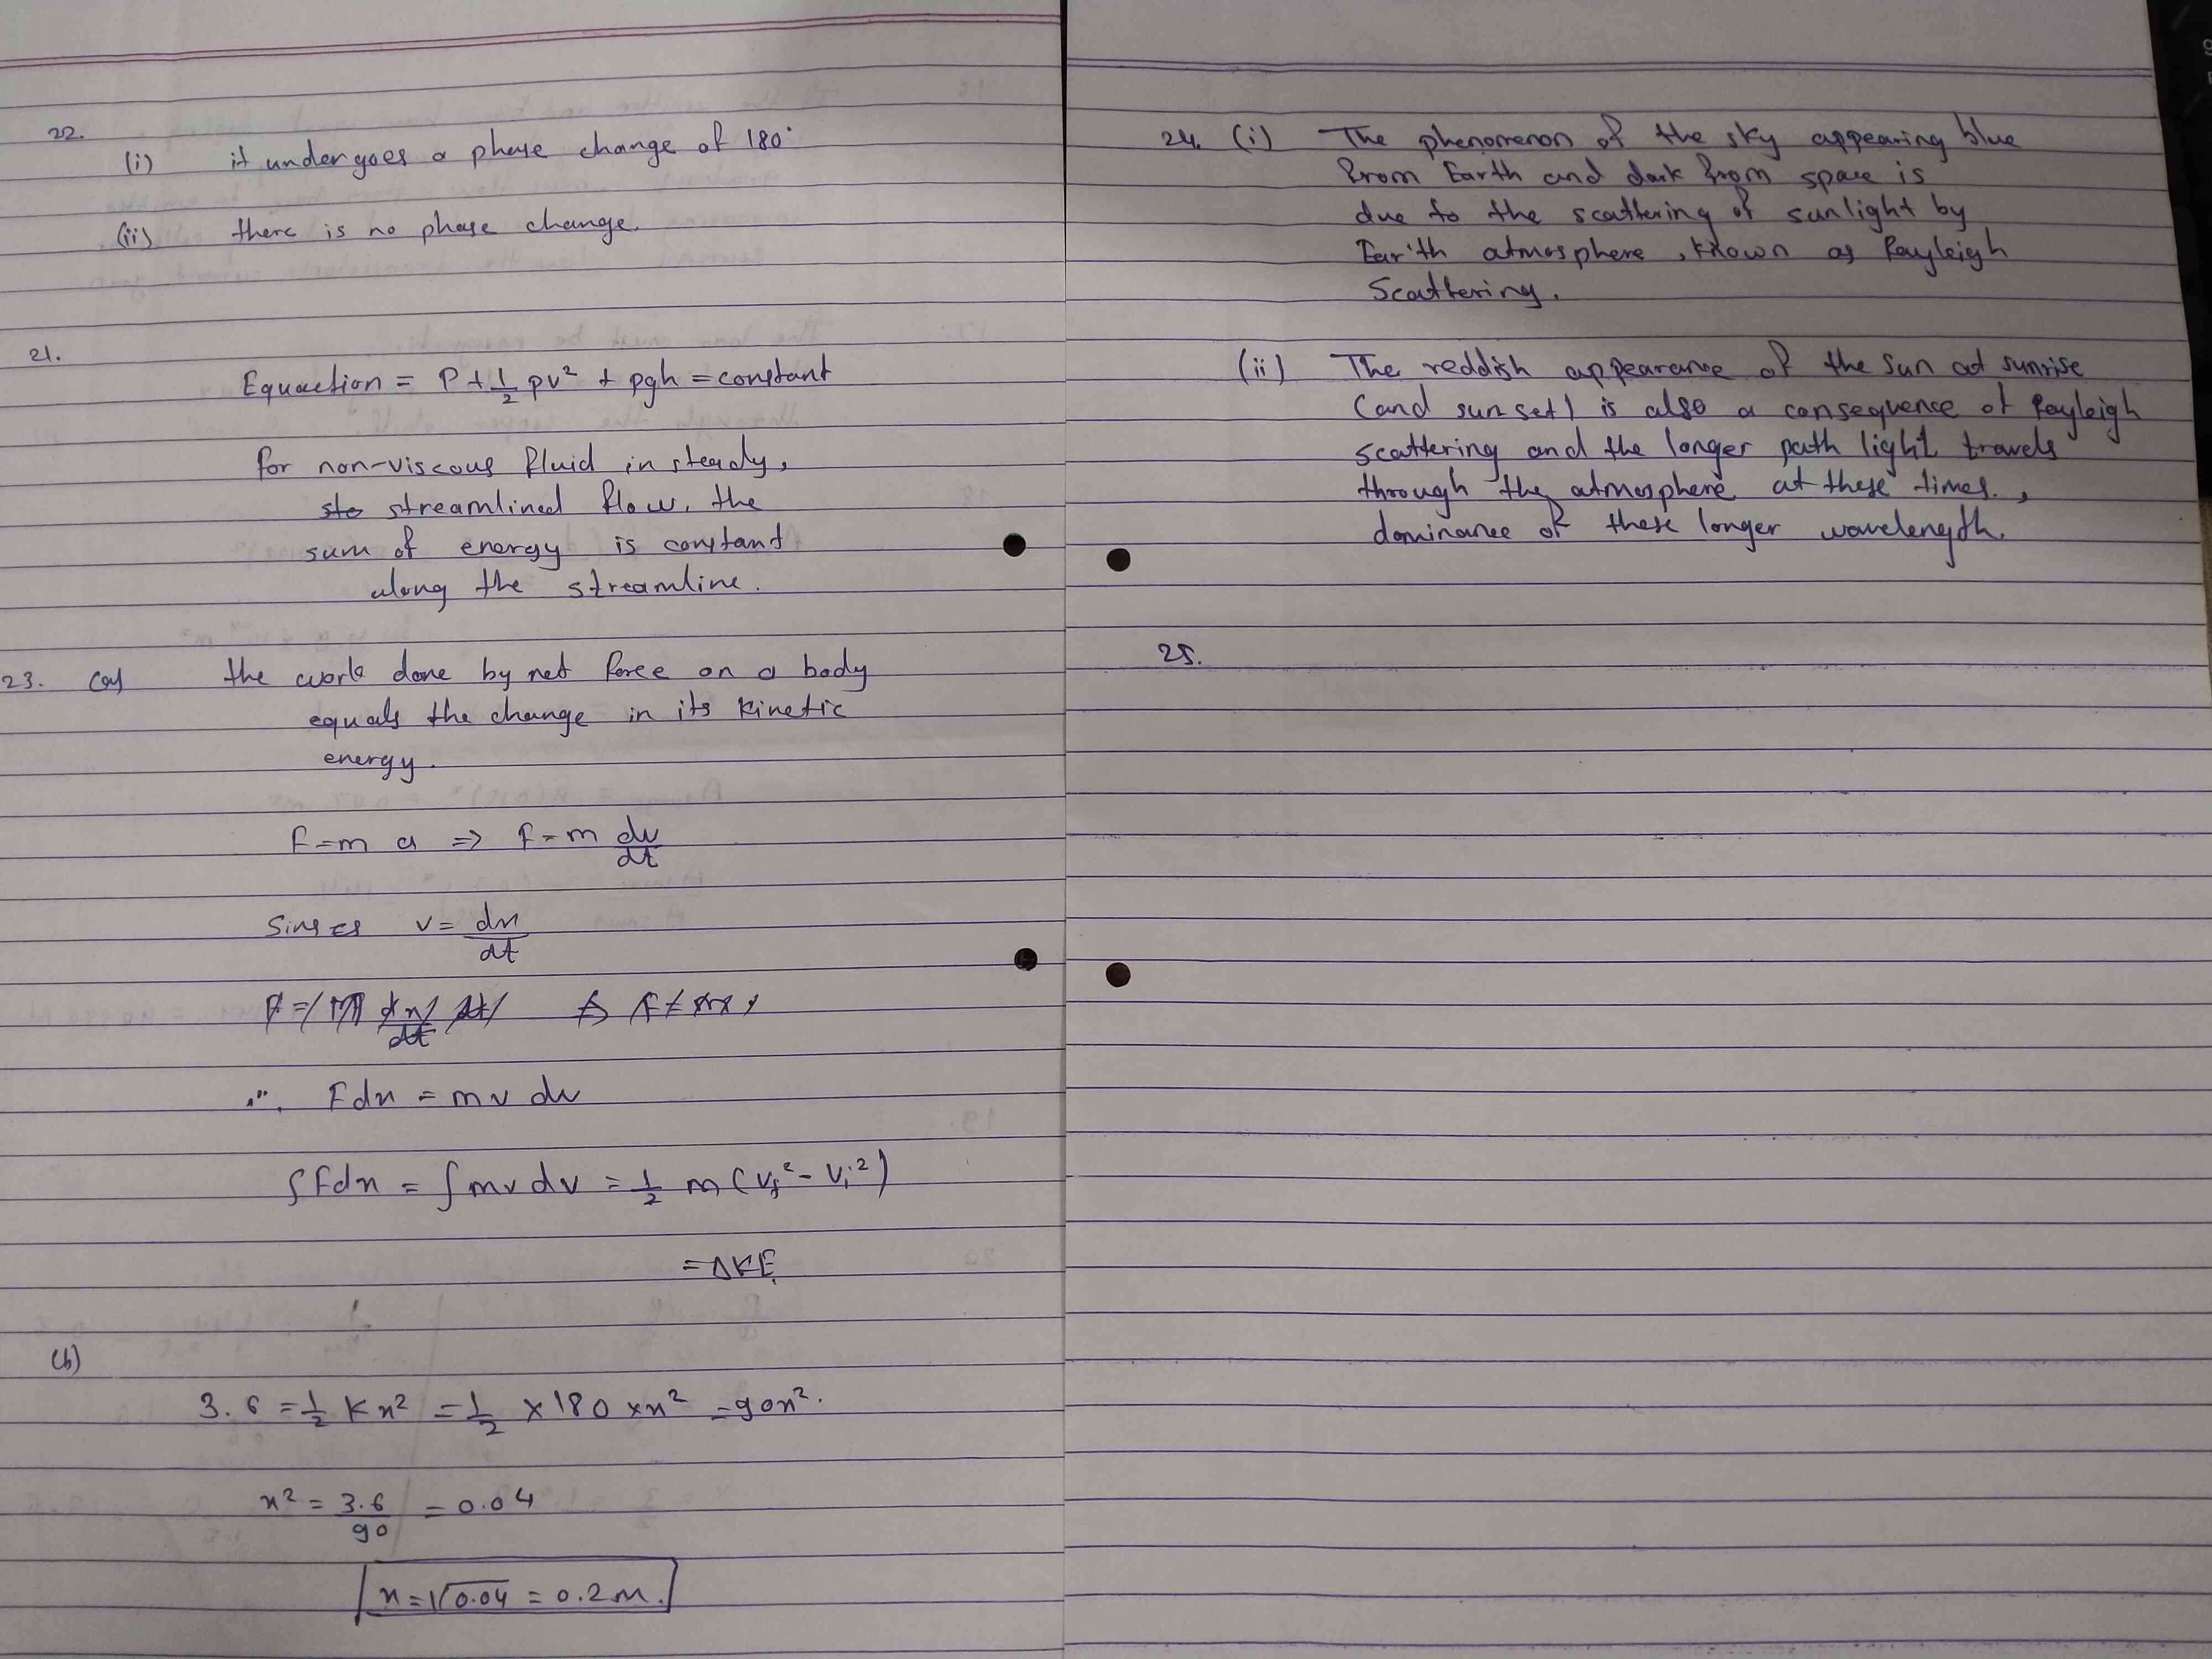 22.
(i) it undergoes a phase change of 180°
(ii) there is no phase change.
21.
Equaction = P + 1/2 ρv² + ρgh = constant
for non-viscous fluid in steady,
streamlined flow, the
sum of energy is constant
along the streamline.
23. (a) the work done by net force on a body
equals the change in its kinetic
energy.
F = m a => F = m dv/dt
v = dx/dt
∴ Fdx = mv dv
∫Fdx = ∫mv dv = 1/2 m (vf² - vi²)
= ΔKE
(b)
3.6 = 1/2 Kx² = 1/2 × 180 × x² = 90x².
x² = 3.6/90 = 0.04
x = √0.04 = 0.2 m.
24. (i) The phenomenon of the sky appearing blue
from Earth and dark from space is
due to the scattering of sunlight by
Earth atmosphere, known as Rayleigh
Scattering.
(ii) The reddish appearance of the Sun at sunrise
(and sunset) is also a consequence of Rayleigh
scattering and the longer path light travels
through the atmosphere at these times.,
dominance of these longer wavelength.
25.